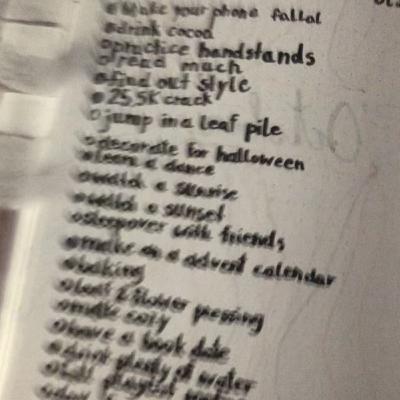 make your phone fallal
drink cocoa
practice handstands
read much
find out style
25,5K crack
jump in a leaf pile
decorate for halloween
learn a dance
watch a sunrise
watch a sunset
sleepover with friends
make an a advent calendar
baking
leaf & flower pressing
make cozy
have a book date
drink plenty of water
fall playlist